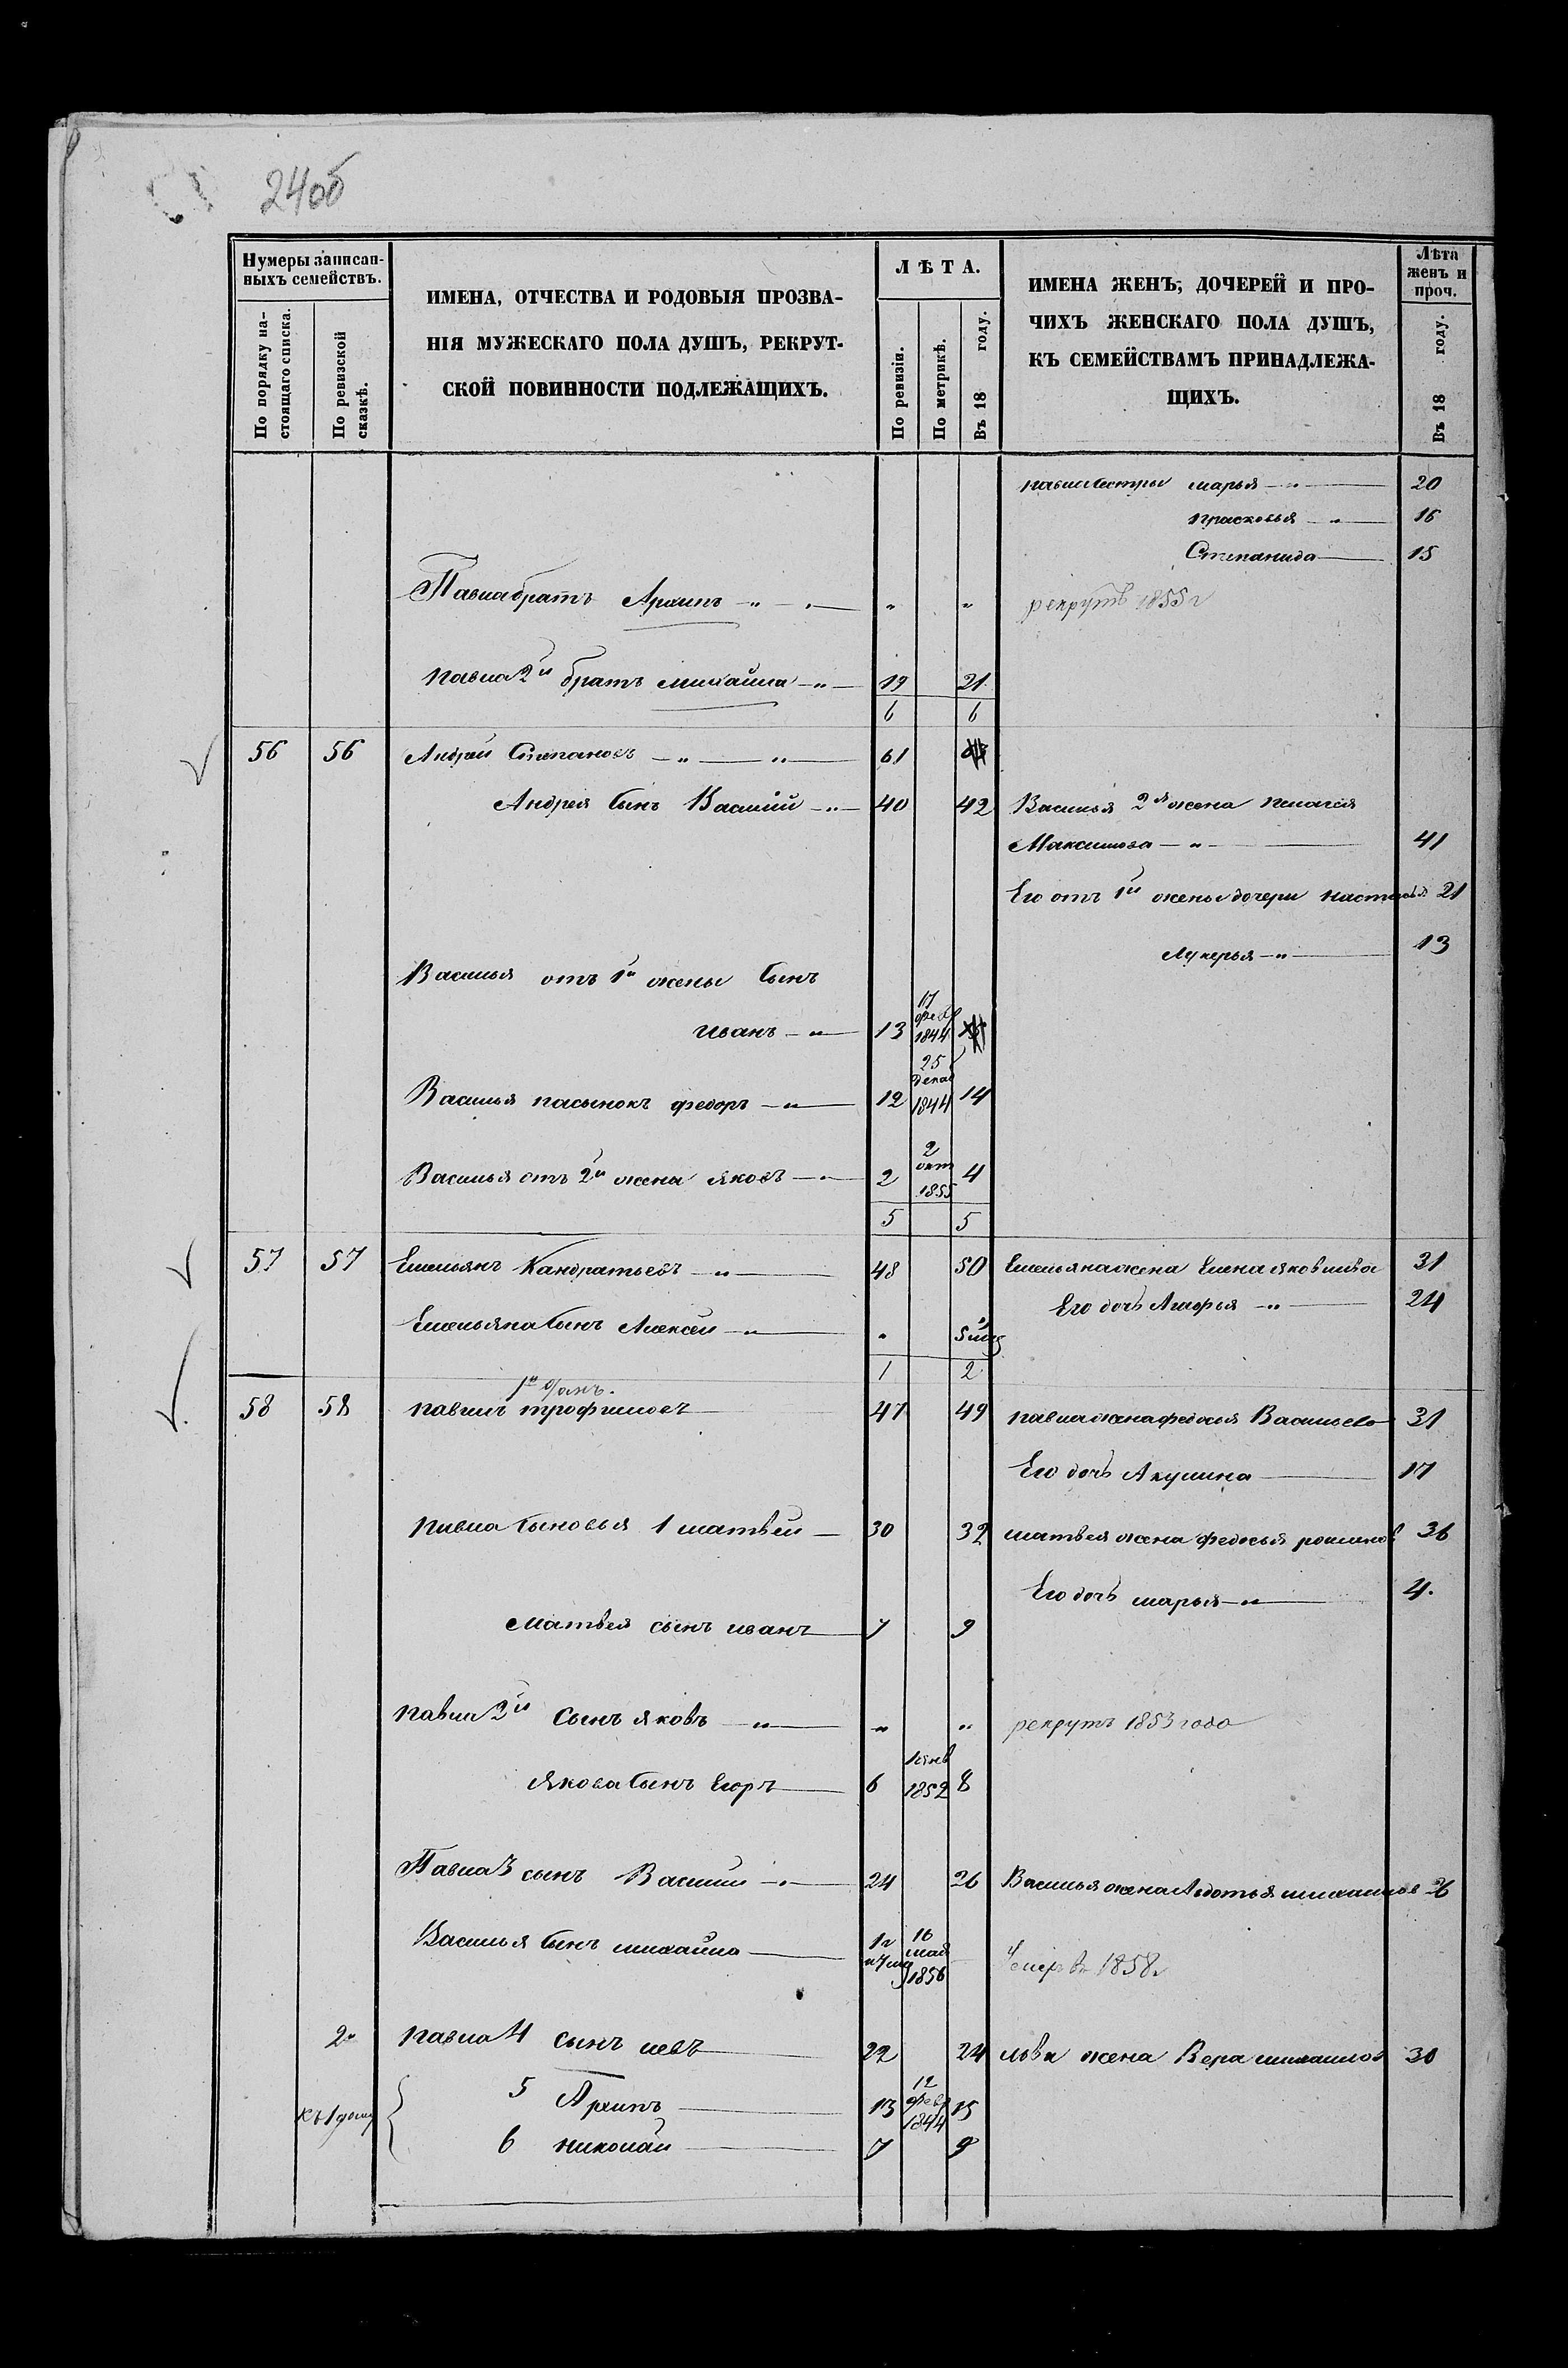 24об
Нумеры записан-
ныхъ семействъ.
По порядку на-
стоящаго списка.
По ревизской
сказкѣ.
ИМЕНА, ОТЧЕСТВА И РОДОВЫЯ ПРОЗВА-
НІЯ МУЖЕСКАГО ПОЛА ДУШЪ, РЕКРУТ-
СКОЙ ПОВИННОСТИ ПОДЛЕЖАЩИХЪ.
ЛѢТА.
По ревизіи.
По метрикѣ.
Въ 18 году.
ИМЕНА ЖЕНЪ, ДОЧЕРЕЙ И ПРО-
ЧИХЪ ЖЕНСКАГО ПОЛА ДУШЪ,
КЪ СЕМЕЙСТВАМЪ ПРИНАДЛЕЖА-
ЩИХЪ.
Лѣта
женъ и
проч.
Въ 18 году.
павла сестры марья — " — 20
прасковья — " — 16
Степанида — 15
Павла братъ Архипъ — " — " — " " рекрутъ 1855 г
павла 2й братъ михайла — " — 19 21
6 6
56 56 Андрей Степановъ — " — " — 61
Андрея сынъ Василій — " — 40 42 Василья 2я жена пелагея
Максимова — " — 41
Его от 1й жены дочери настасья 21
лукерья — " — 13
Василья отъ 1й жены сынъ
иванъ — " — 13 17 февр 1844
Василья пасынокъ федоръ — " — 12 25 декаб 1844 14
Василья отъ 2й жена яковъ — " — 2 2 окт 1855 4
5 5
57 57 Емельянъ Кандратьевъ — " — 48 50 Емельяна жена Елена яковлива 31
Его дочь Агафья — " — 24
Емельяна сынъ Алексей — " — " 5 мц
1 2
58 58 павилъ трофимовъ — 47 49 павла жена федосья Васильев 31
Его дочь Акулина — 17
павла сыновья 1 матвеи — 30 32 матвея жена федосья романов 36
Его дочь марья — " — 4.
матвея сынъ иванъ — 7 9
павла 2й сынъ яковъ — " — " " рекрутъ 1853 года
Якова сынъ Егоръ — 6 1852 8
Павла 3 сынъ Василии — " — 24 26 Василья жена Авдотья михаилов 26
Василья сынъ михайла — 1 г и 7 мц 16 май 1856 Умеръ въ 1858 г
2й павла 4 сынъ левъ — 22 24 льва жена Вера михаилов 30
къ 1 дому 5 Архипъ — 13 12 февр 1844 15
6 николай — 7 9